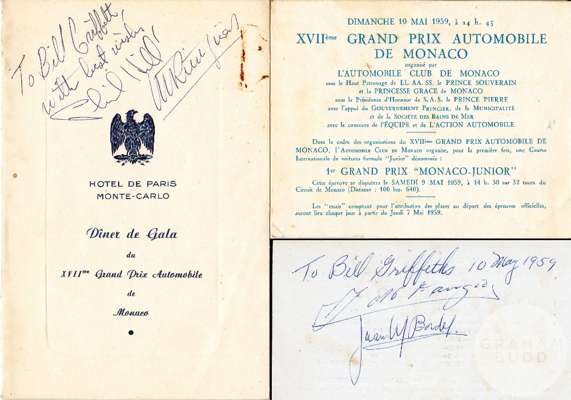 To Bill Griffith
with best wishes
Phil Hill
HOTEL DE PARIS
MONTE-CARLO
Dîner de Gala
du
XVIIme Grand Prix Automobile
de
Monaco
DIMANCHE 10 MAI 1959, à 14 h. 45
XVIIème GRAND PRIX AUTOMOBILE
DE MONACO
organisé par
L'AUTOMOBILE CLUB DE MONACO
sous le Haut Patronage de LL. AA. SS. le PRINCE SOUVERAIN
et la PRINCESSE GRACE de MONACO
sous la Présidence d'Honneur de S.A.S. le PRINCE PIERRE
avec l'appui du GOUVERNEMENT PRINCIER, de la MUNICIPALITÉ
et de la SOCIÉTÉ DES BAINS DE MER
avec le concours de l'ÉQUIPE et de L'ACTION AUTOMOBILE
Dans le cadre des organisations du XVIIème GRAND PRIX AUTOMOBILE DE
MONACO, l'Automobile Club de Monaco organise, pour la première fois, une Course
Internationale de voitures formule "Junior" dénommée :
1er GRAND PRIX "MONACO-JUNIOR"
Cette épreuve se disputera le SAMEDI 9 MAI 1959, à 14 h. 30 sur 32 tours du
Circuit de Monaco (Distance : 100 km. 640).
Les "essais" comptant pour l'attribution des places au départ des épreuves officielles,
auront lieu chaque jour à partir du Jeudi 7 Mai 1959.
To Bill Griffiths 10 May 1959
Fangio
Juan M Bordeu
GRAHAM
BUDD